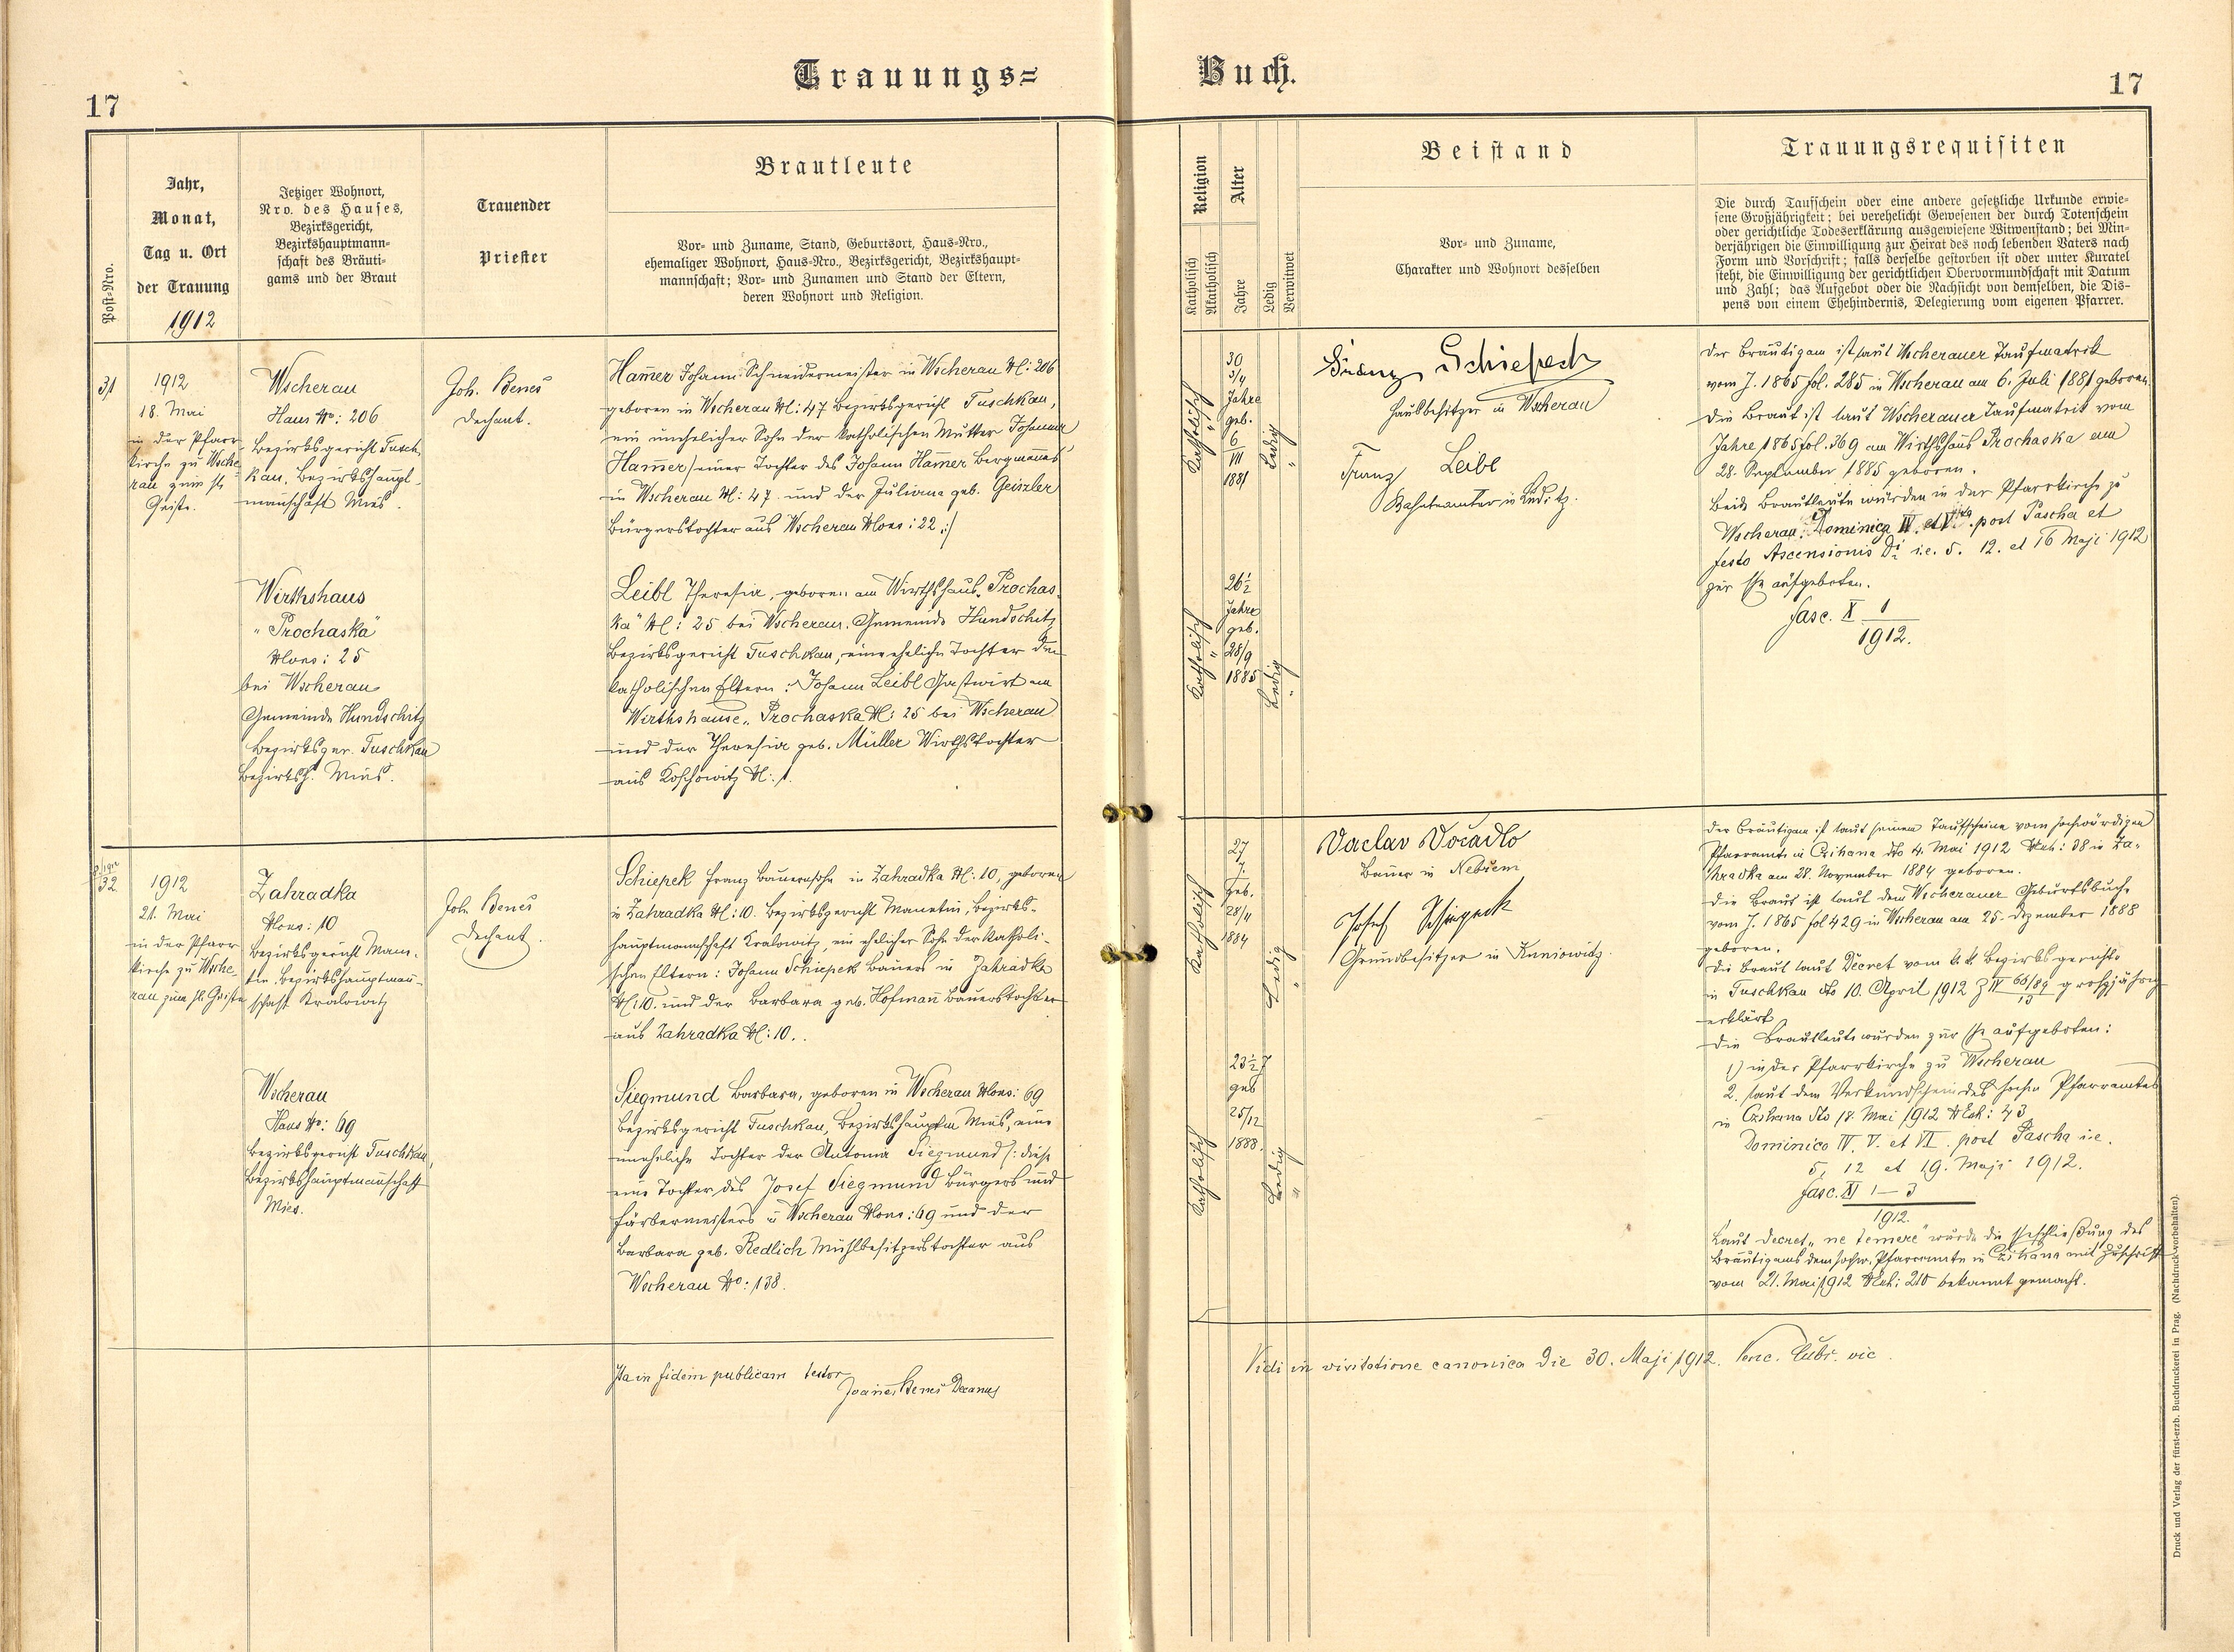 Trauungs=
Buch.
17
17
Post-Nro.
Jahr,
Monat,
Tag u. Ort
der Trauung
1912
Jetziger Wohnort,
Nro. des Hauses,
Bezirksgericht,
Bezirkshauptmann=
schaft des Bräuti=
gams und der Braut
Trauender
Priester
Brautleute
Vor= und Zuname, Stand, Geburtsort, Haus=Nro.,
ehemaliger Wohnort, Haus=Nro., Bezirksgericht, Bezirkshaupt=
mannschaft; Vor= und Zunamen und Stand der Eltern,
deren Wohnort und Religion.
Religion
Katholisch
Akatholisch
Alter
Jahre
Ledig
Verwitwet
Beistand
Vor= und Zuname,
Charakter und Wohnort desselben
Trauungsrequisiten
Die durch Taufschein oder eine andere gesetzliche Urkunde erwie=
sene Großjährigkeit; bei verehelicht Gewesenen der durch Totenschein
oder gerichtliche Todeserklärung ausgewiesene Witwenstand; bei Min=
derjährigen die Einwilligung zur Heirat des noch lebenden Vaters nach
Form und Vorschrift; falls derselbe gestorben ist oder unter Kuratel
steht, die Einwilligung der gerichtlichen Obervormundschaft mit Datum
und Zahl; das Aufgebot oder die Nachsicht von demselben, die Dis=
pens von einem Ehehindernis, Delegierung vom eigenen Pfarrer.
31
1912
18. Mai
in der Pfarr
kirche zu Wsche
rau zum hl.
Geiste.
Wscherau
Haus No: 206
Bezirksgericht Tusch
kau, Bezirkshaupt-
mannschaft Mies.
Joh. Beneš
Dechant.
Ham̄er Johann Schneidermeister in Wscherau N: 206
geboren in Wscherau N: 47 Bezirksgericht Tuschkau,
ein unehelicher Sohn der katholischen Mutter Johanna
Ham̄er /: einer Tochter des Johann Ham̄er Bergmannes
in Wscherau N: 47. und der Juliana geb. Geiszler
Bürgerstochter aus Wscherau Ncons: 22 :/
Wirthshaus
"Prochaska"
Ncons: 25
bei Wscherau
Gemeinde Hundschitz
Bezirksger. Tuschkau
Bezirksh. Mies.
Leibl Theresia, geboren am Wirthshaus "Prochas
ka" N: 25 bei Wscherau. Gemeinde Hundschitz
Bezirksgericht Tuschkau, eine eheliche Tochter der
katholischen Eltern: Johann Leibl Gastwirt am
Wirthshause "Prochaska N: 25 bei Wscherau
und der Theresia geb. Müller Wirthstochter
aus Koschowitz N: 1.
Katholisch
"
30
3/4
Jahre
geb.
6
VII
1881
Ledig
"
Franz Schiepek
Hausbesitzer in Wscherau
Franz Leibl
Bahnbeamter in Luditz.
Katholisch
"
26½
Jahre
geb.
28/9
1885
Ledig
"
Der Bräutigam ist laut Wscherauer Taufmatrik
vom J. 1865 fol. 285 in Wscherau am 6. Juli 1881 geboren.
Die Braut ist laut Wscherauer Taufmatrik vom
Jahre 1865 fol. 369 am Wirthshaus Prochaska am
28. September 1885 geboren.
Beide Brautleute wurden in der Pfarrkirche zu
Wscherau Dominica IV. et V. post Pascha et
festo Ascensionis Di i.e. 5. 12. et 16 Maji 1912
zur Ehe aufgeboten.
fasc. X 1
1912.
32
1912
21. Mai
in der Pfarr
kirche zu Wsche
rau zum hl. Geiste
Zahradka
Ncons: 10
Bezirksgericht Mane-
tin, Bezirkshauptman̄-
schaft Kralowitz
Joh. Beneš
Dechant.
Schiepek Franz Bauernsohn in Zahradka N: 10, geboren
in Zahradka N: 10. Bezirksgericht Manetin, Bezirks-
hauptmannschaft Kralowitz, ein ehelicher Sohn der katholi-
schen Eltern: Johann Schiepek Bauers in Zahradka
N: 10. und der Barbara geb. Hofman̄ Bauerstochter
aus Zahradka N: 10..
Wscherau
Haus No: 69
Bezirksgericht Tuschkau,
Bezirkshauptman̄schaft
Mies.
Siegmund Barbara, geboren in Wscherau Ncons: 69
Bezirksgericht Tuschkau, Bezirkshauptm Mies, eine
uneheliche Tochter der Antonia Siegmund /: diese
eine Tochter des Josef Siegmund Bürgers und
Färbermeisters in Wscherau Ncons: 69 und der
Barbara geb. Redlich Mühlbesitzerstochter aus
Wscherau No: 138.
Katholisch
27
J.
geb.
28/11
1884
Ledig
"
Vaclav Vočadlo
Bauer in Nebřem
Josef Schiepek
Grundbesitzer in Kuniowitz.
Katholisch
23½ J
geb
25/12
1888.
Ledig
"
Der Bräutigam ist laut seinem Taufscheine vom hochwürdigen
Pfarramte in Czihana dto 4. Mai 1912 Nexh: 38 in Za-
hradka am 28. November 1884 geboren.
Die Braut ist laut dem Wscherauer Geburtsbuche
vom J. 1865 fol 429 in Wscherau am 25. Dezember 1888
geboren.
Die Braut laut Decret vom k. k. Bezirksgerichte
in Tuschkau dto 10. April 1912 großjährig
erklärt
Die Brautleute wurden zur Ehe aufgeboten:
1) in der Pfarrkirche zu Wscherau
2. laut dem Verkündschein des hochw Pfarramtes
in Czihana dto 18. Mai 1912 Nexh: 43
Dominica IV. V. et VI. post Pascha i.e.
5, 12 et 19. Maji 1912.
fasc. XI 1–3
1912.
Laut Decret "ne temere" wurde die Eheschließung des
Bräutigams dem hochw. Pfarramte in Czihana mit Zuschrift
vom 21. Mai 1912 Nexh: 210 bekannt gemacht.
Ita in fidem publicam testor
Joannes Beneš Decanus
Vidi in visitatione canonica die 30. Maji 1912. vic
Druck und Verlag der fürst-erzb. Buchdruckerei in Prag. (Nachdruck vorbehalten).